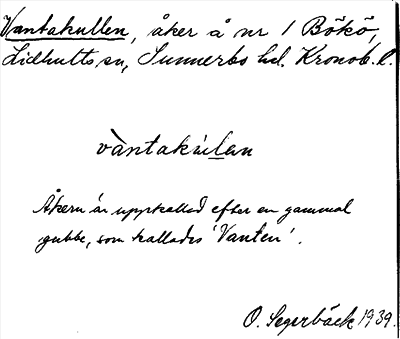 Vantakullen, åker å nr 1 Bökö,
Lidhults sn, Sunnerbo hd. Kronob. l.
vàntakúlen
Åkern är uppkallad efter en gammal
gubbe, som kallades 'Vanten'.
O. Segerbäck 1939.